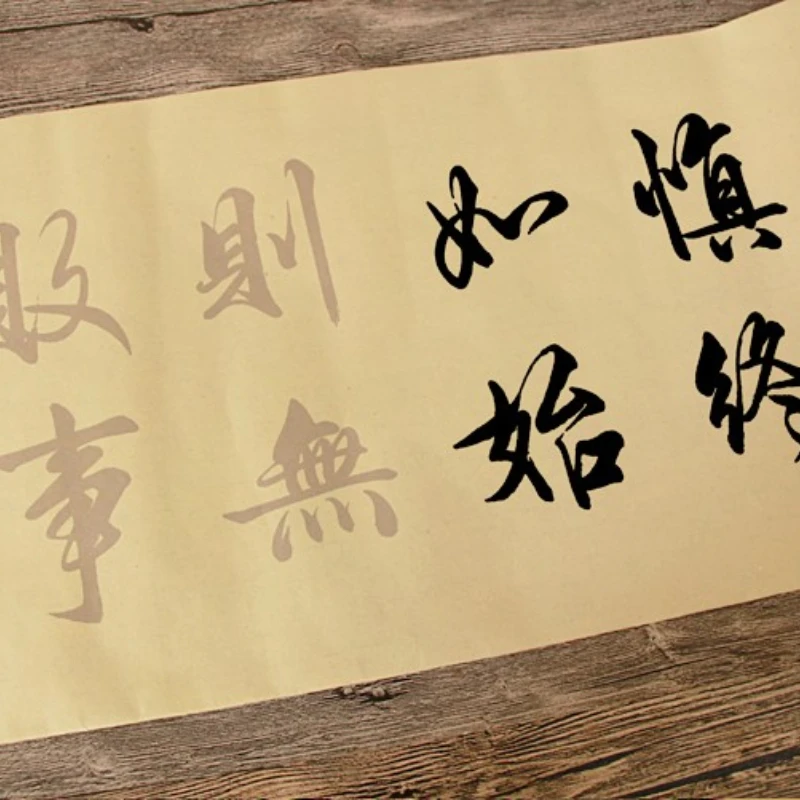 慎終
如始
則無
敗事